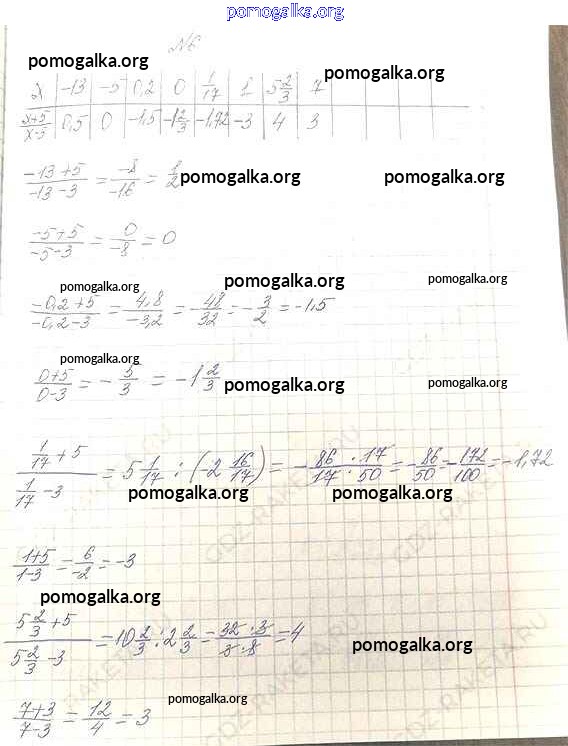 pomogalka.org
N6
pomogalka.org
pomogalka.org
x | -13 | -5 | 0,2 | 0 | 1/17 | 1 | 5 2/3 | 7
x+5/x-3 | 0,5 | 0 | -1,5 | -1 2/3 | -1,72 | -3 | 4 | 3
-13+5/-13-3 = -8/-16 = 1/2
pomogalka.org pomogalka.org
-5+5/-5-3 = 0/-8 = 0
pomogalka.org pomogalka.org pomogalka.org
-0,2+5/-0,2-3 = 4,8/-3,2 = -48/32 = -3/2 = -1,5
pomogalka.org
0+5/0-3 = -5/3 = -1 2/3
pomogalka.org pomogalka.org
1/17+5 / 1/17-3 = 5 1/17 : (-2 16/17) = -86·17/17·50 = -86/50 = -172/100 = -1,72
pomogalka.org pomogalka.org
GDZ-RAKETA.RU
1+5/1-3 = 6/-2 = -3
pomogalka.org
5 2/3+5 / 5 2/3-3 = 10 2/3 : 2 2/3 = 32·3/3·8 = 4
pomogalka.org
GDZ-RAKETA.RU
pomogalka.org
7+3/7-3 = 12/4 = 3